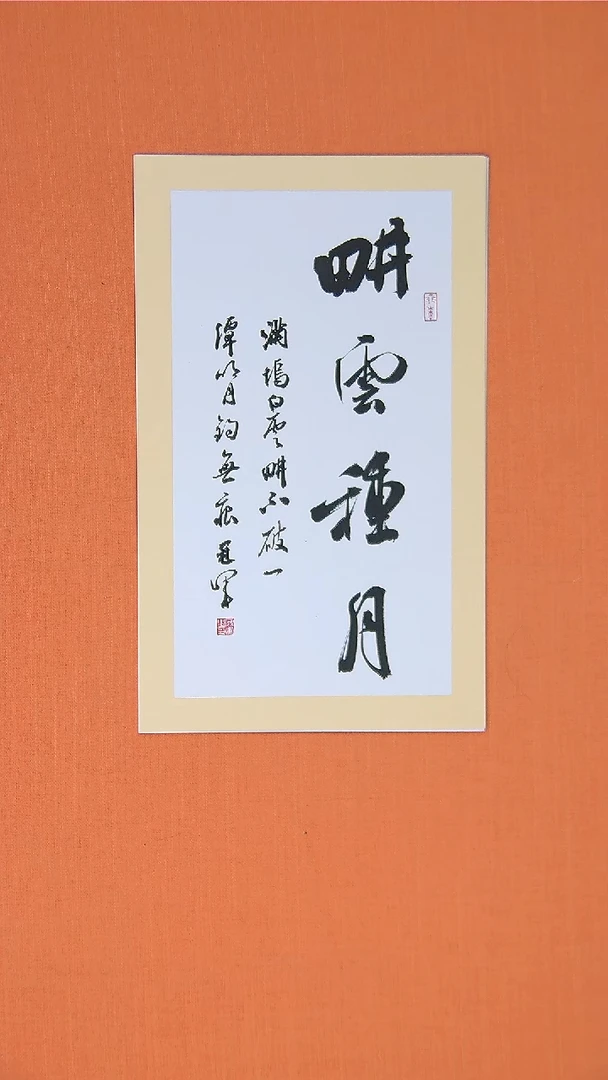 畊雲種月
滿塢白雲畊不破一
潭明月釣無痕